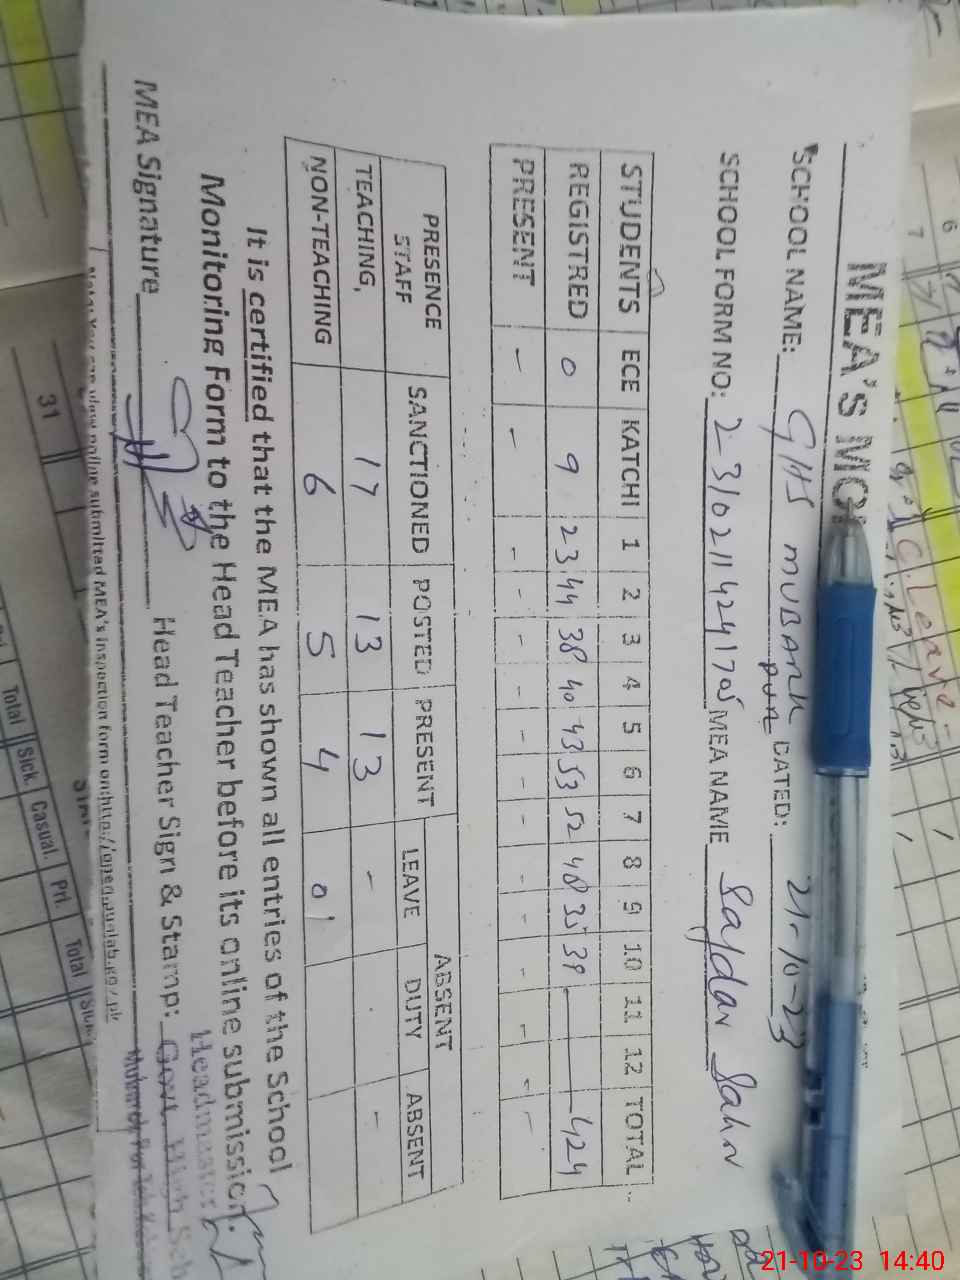 MEA's MO
SCHOOL NAME: GHS MUBARK PUR DATED: 21-10-23
SCHOOL FORM NO: MEA NAME Safdar
STUDENTS ECE KATCHI 1 2 3 4 5 6 7 8 9 10 11 12 TOTAL
REGISTRED 0 9 23 44 38 40 43 53 52 48 35 39 — 424
PRESENT - - - - - - - - - - - - - - -
PRESENCE STAFF SANCTIONED POSTED PRESENT ABSENT
LEAVE DUTY ABSENT
TEACHING, 17 13 13 - -
NON-TEACHING 6 5 4 01
It is certified that the MEA has shown all entries of the School
Monitoring Form to the Head Teacher before its online submission.
MEA Signature Head Teacher Sign & Stamp:
Headmaster
Govt. High Sch
Note: You can view online submitted MEA's inspection form on:
31
Total Sick. Casual. Pri. Total
C. Leave
6
7
21-10-23 14:40